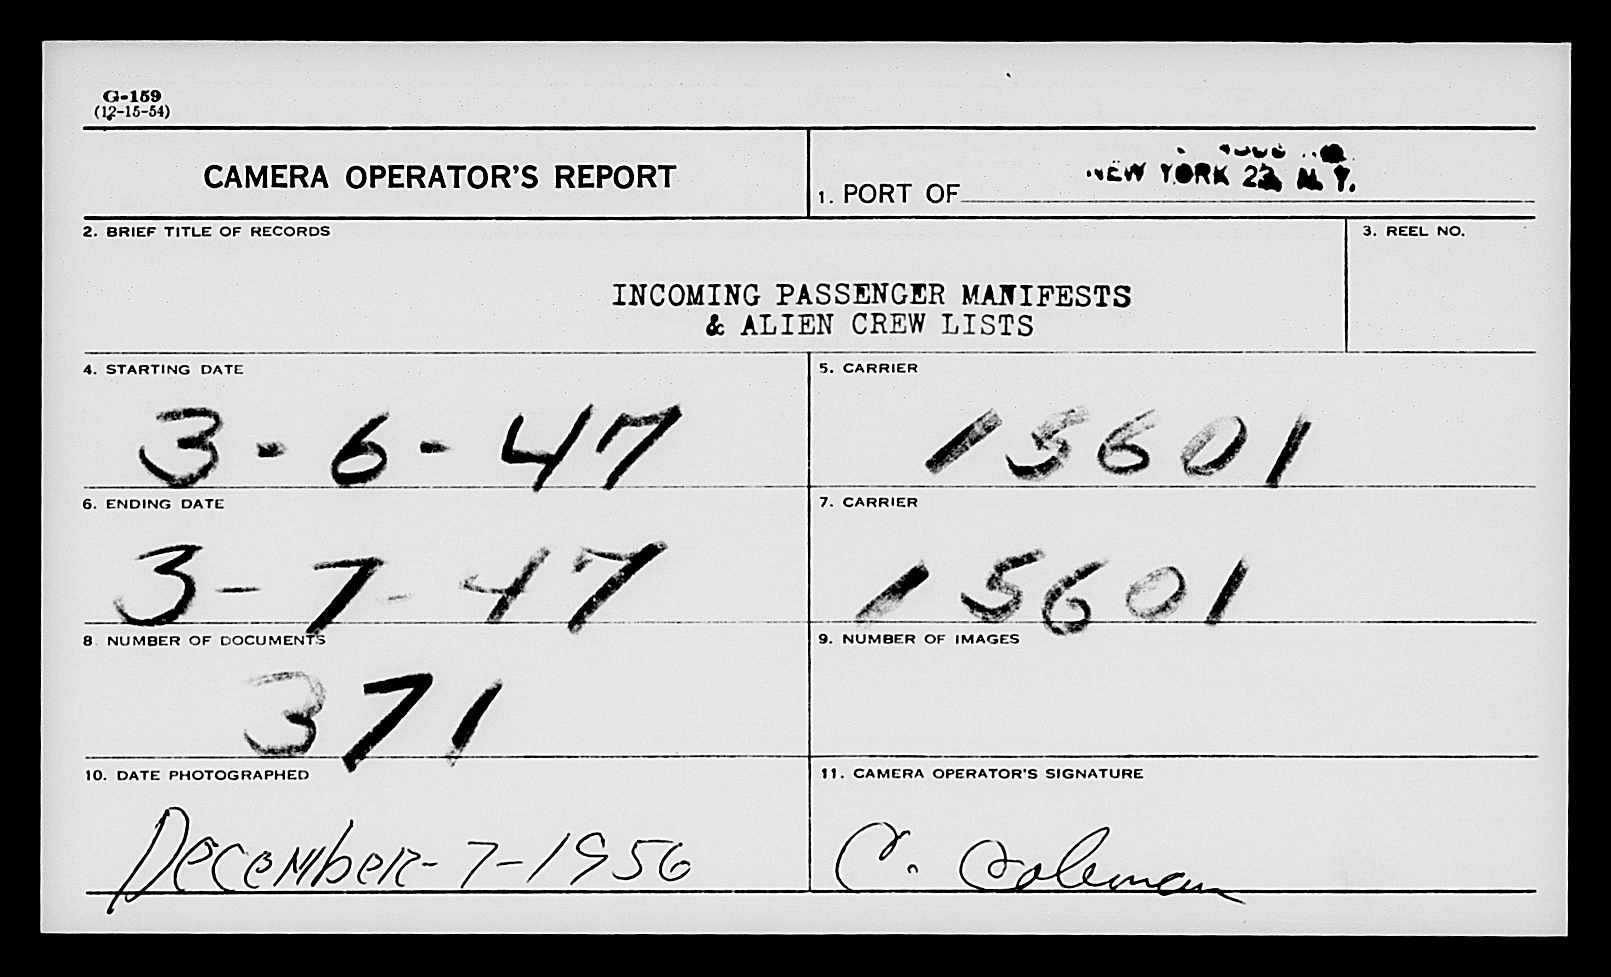 G-159
(12-15-54)
CAMERA OPERATOR'S REPORT
1. PORT OF
NEW YORK 22, N. Y.
2. BRIEF TITLE OF RECORDS
3. REEL NO.
INCOMING PASSENGER MANIFESTS
& ALIEN CREW LISTS
4. STARTING DATE
3-6-47
5. CARRIER
15601
6. ENDING DATE
3-7-47
7. CARRIER
15601
8 NUMBER OF DOCUMENTS
371
9. NUMBER OF IMAGES
10. DATE PHOTOGRAPHED
December-7-1956
11. CAMERA OPERATOR'S SIGNATURE
C. Coleman